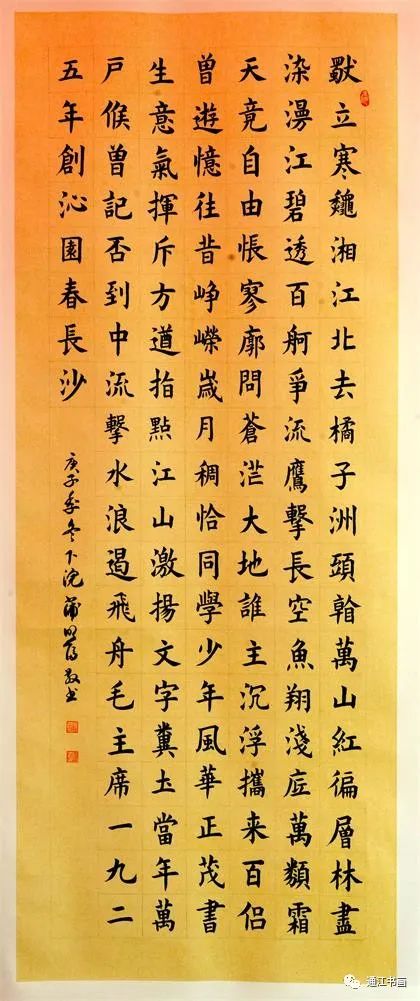 獨立寒龝湘江北去橘子洲頭看萬山紅徧層林盡
染漫江碧透百舸爭流鷹擊長空魚翔淺底萬類霜
天竟自由悵寥廓問蒼茫大地誰主沉浮攜来百侶
曾遊憶往昔崢嶸歲月稠恰同學少年風華正茂書
生意氣揮斥方遒指點江山激揚文字糞土當年萬
戶侯曾記否到中流擊水浪遏飛舟毛主席一九二
五年創沁園春長沙
庚子季冬下浣蒲敬书
通江书画